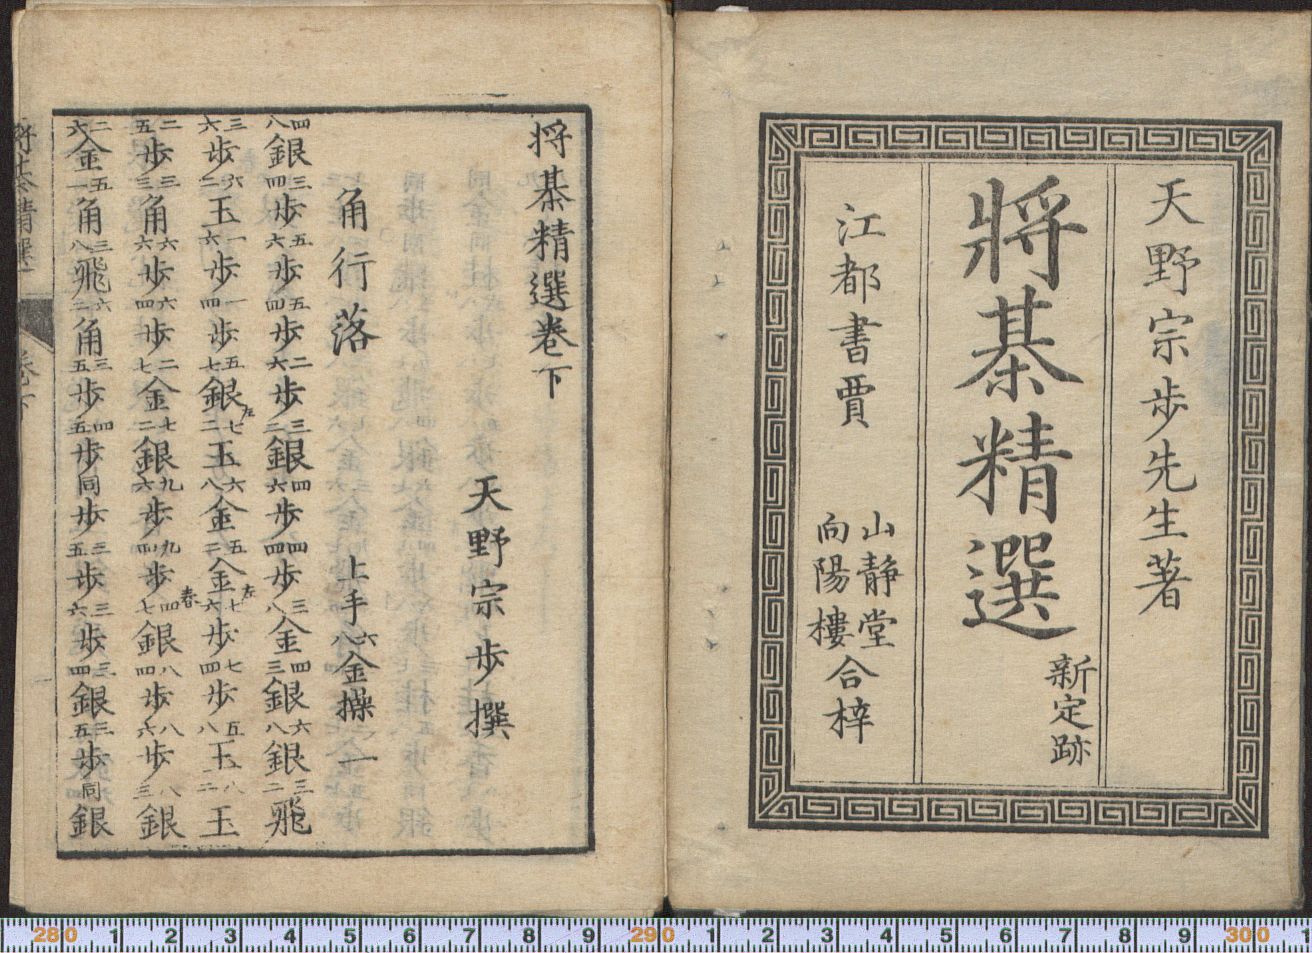 天野宗歩先生著
將棊精選
新定跡
江都書賈
山静堂
向陽樓
合梓
将棊精選巻下
天野宗歩撰
角行落 上手六八金操一
四八銀三四歩五六歩五四歩二六歩三二銀四六歩四四歩三八金四三銀六八銀三二飛
三六歩六二玉一六歩一四歩五七銀左七二玉六八金五二金左七六歩七四歩五八玉八二玉
二五歩三三角六六歩六四歩二七金七二銀九六歩九四歩四七銀八四歩八六歩八三銀
二六金五一角三八飛六二角三五歩四五歩同歩三五歩三六歩三四銀三五歩同銀
280 1 2 3 4 5 6 7 8 9 290 1 2 3 4 5 6 7 8 9 300 1